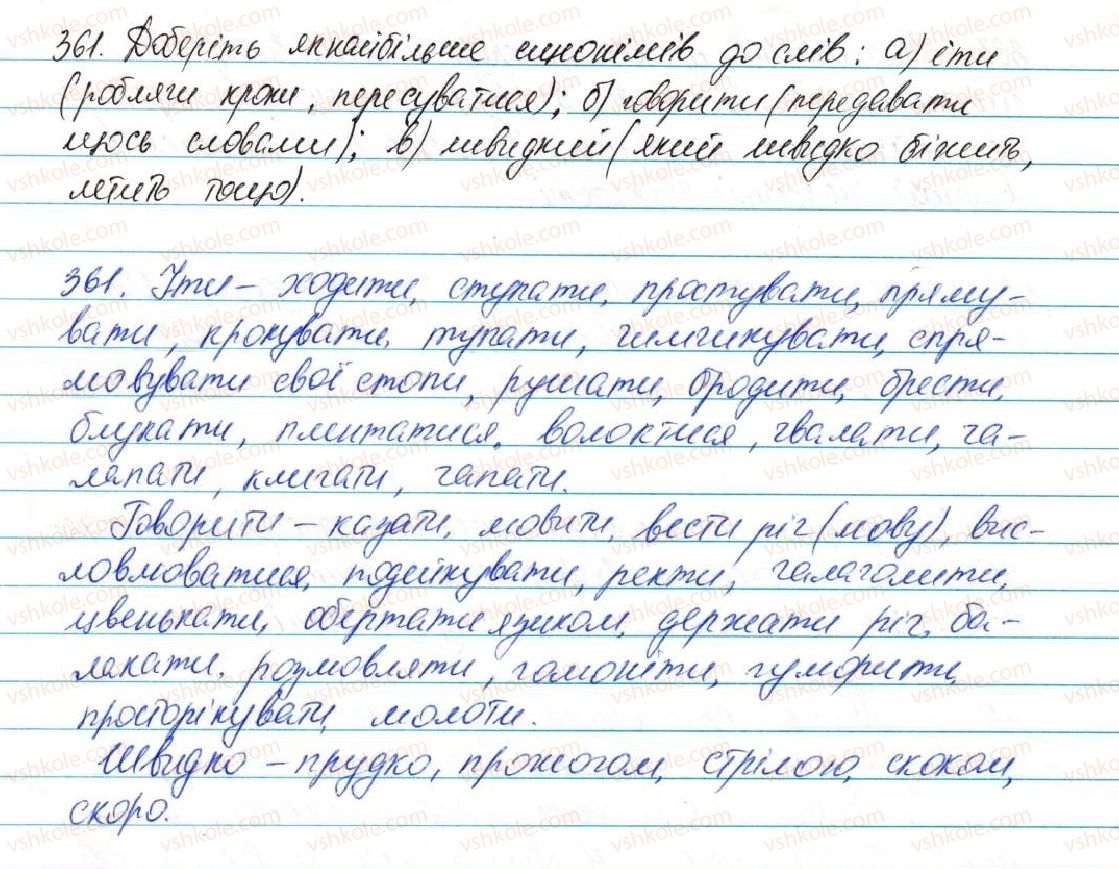 361. Доберіть якнайбільше синонімів до слів: а) іти
(робляги кроки, пересуватися); б) говорити (передавати
щось словами); в) швидкий (який швидко біжить,
летить тощо).
361. Іти – ходити, ступати, простувати, пряму-
вати, крокувати, тупати, чимчикувати, спря-
мовувати свої стопи, рушати, бродити, брести,
блукати, плентатися, волоктися, чвалати, ча-
лапати, клигати, чапати.
Говорити – казати, мовити, вести річ (мову), вис-
ловлюватися, подейкувати, ректи, галаголити,
цвенькати, обертати язиком, держати річ, ба-
лакати, розмовляти, гомоніти, гуморити,
просторікувати, молоти.
Швидко – прудко, прожогом, стрілою, скоком,
скоро.